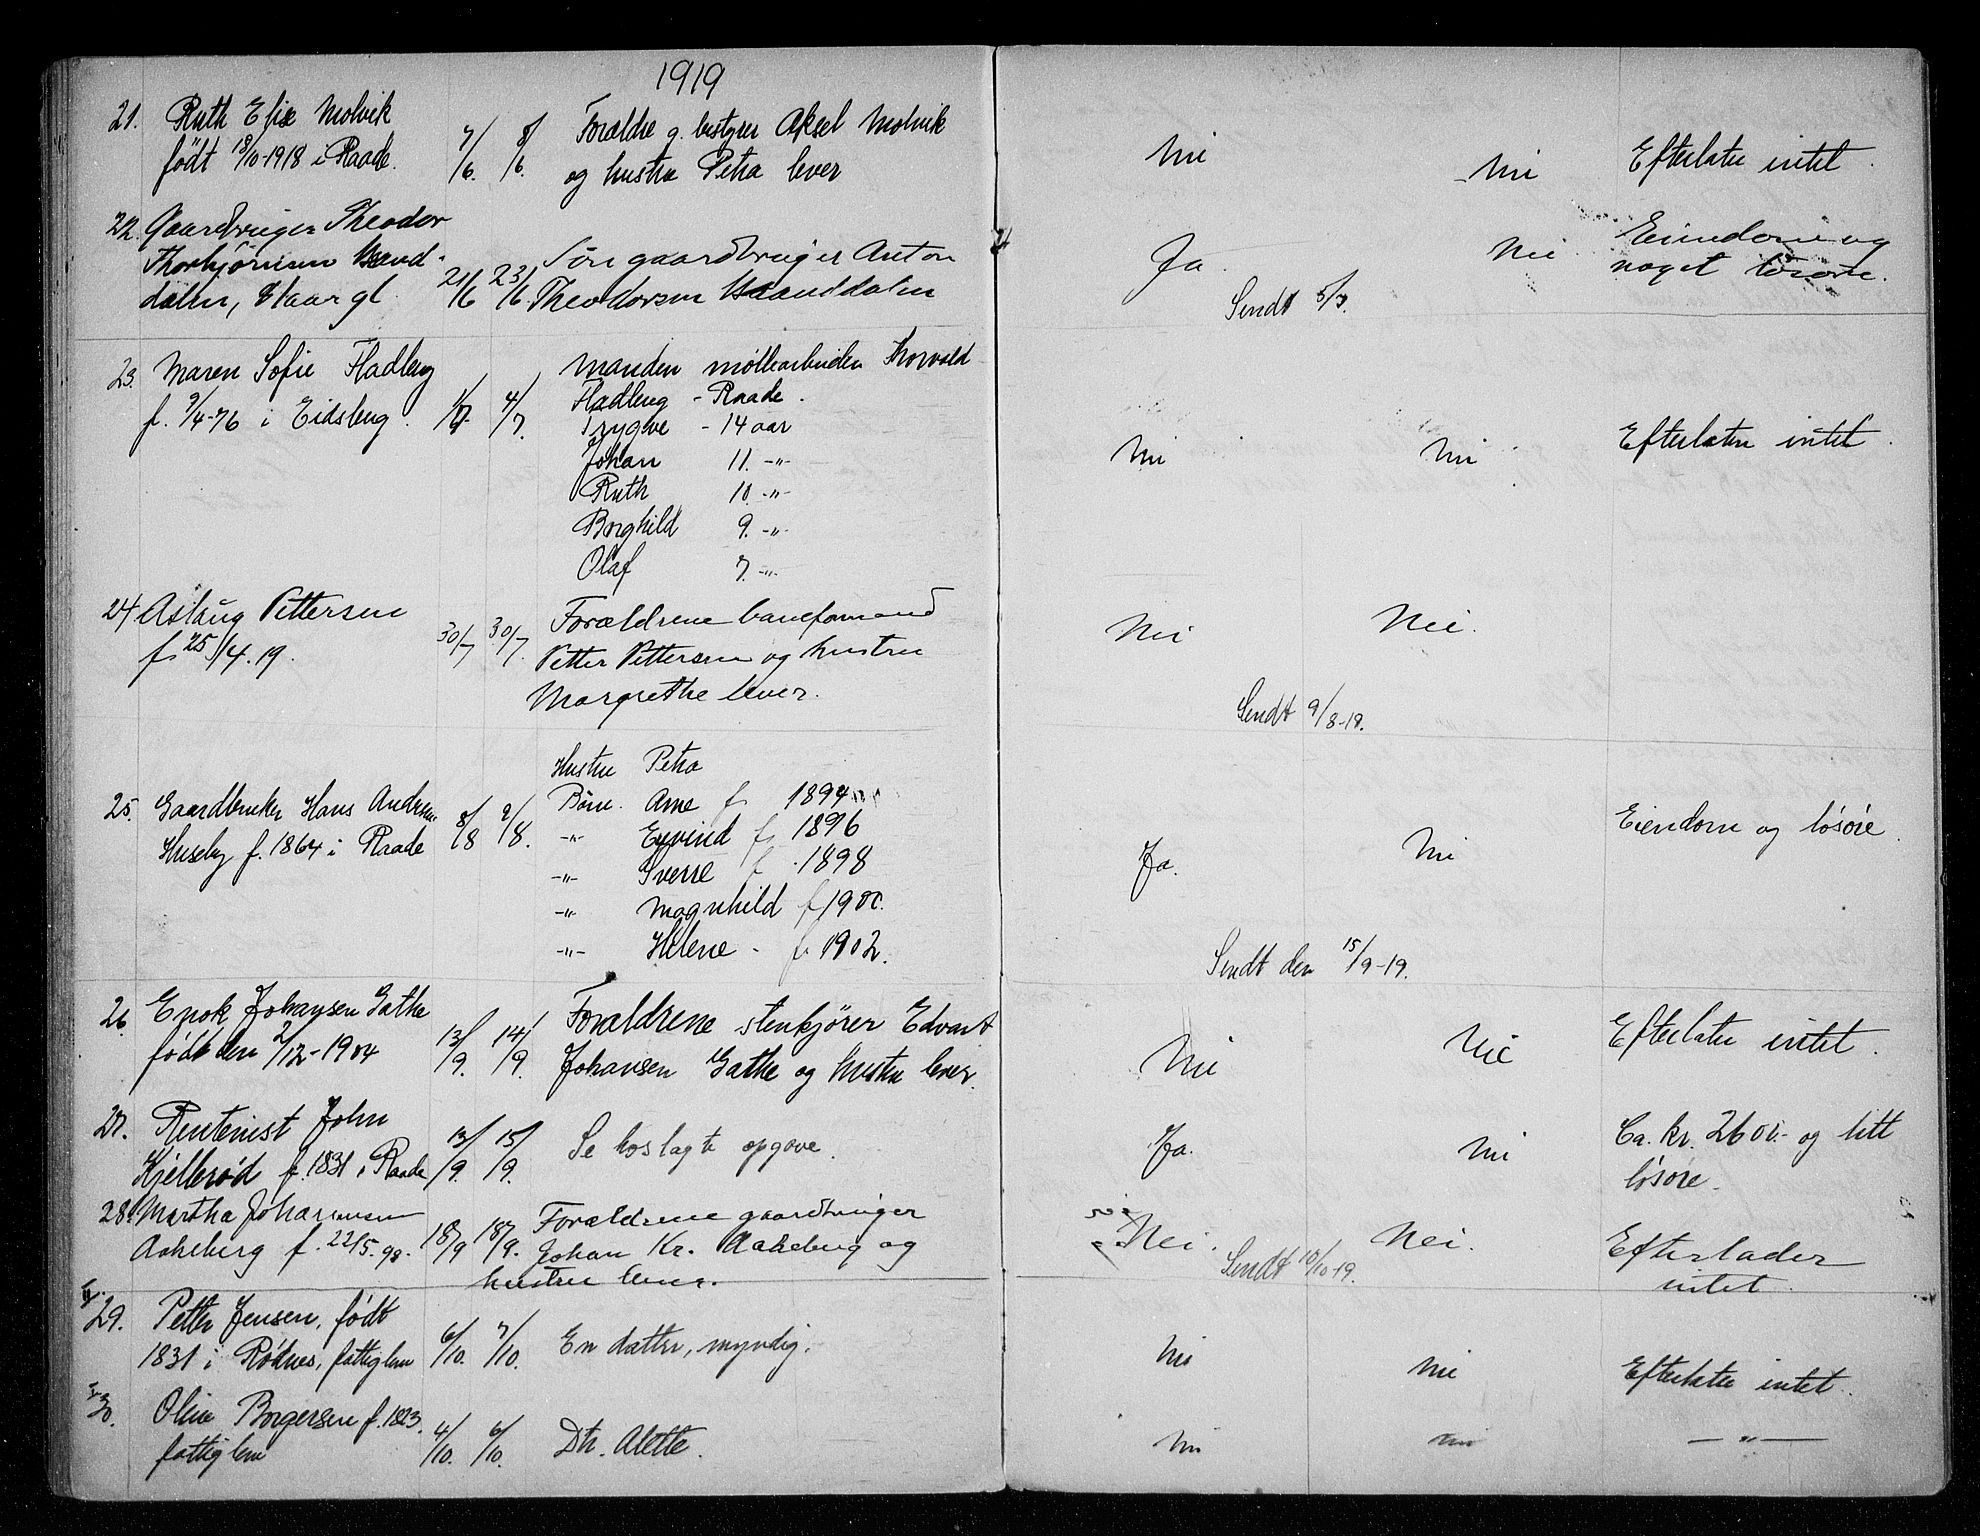 1919
21. Ruth Elise Molvik 7/6. 8/6. Forældre g. bestyrer Aksel Molvik
født 18/10-1918 i Raade. og hustru Petra lever
Nei Nei Efterlater intet
22. Gaardbruger Theodor
Thorbjørnsen 21/6 23/6 Søn gaardbruger Anton
dalen, gl Theodorsen
Ja. Nei Eiendom og
noget løsøre.
Sendt 5/7.
23. Maren Sofie Fladberg Manden møllearbeider Thorvald
f. 9/4-76 i Eidsberg. 4/7. Fladberg - Raade.
Trygve - 14 aar
Johan 11. -"-
Ruth 10. -"-
Borghild 9. -"-
Olaf 7. -"-
Nei Nei Efterlater intet.
24 Aslaug Pettersen 30/7 30/7. Forældrene baneformand
f. 25/4.19. Petter Pettersen og hustru
Margrethe lever.
Nei Nei.
Sendt 9/8-19.
Hustru Petra
25. Gaardbruker Hans Andreas 8/8 9/8. Børn. Arne f 1894
Huseby f. 1864 i Raade -"- Eyvind f 1896
-"- Sverre f 1898
-"- Magnhild f 1900.
-"- Helene - f. 1902.
Ja. Nei Eiendom og løsøre
Sendt den 15/9-19.
26. Enok Johansen Gathe 13/9. 14/9. Forældrene stenkjører Edvart
født den 2/12-1904 Johansen Gathe og hustru lever.
Nei Nei Efterlater intet.
27. Rentenist John 13/9. 15/9. Se hoslagte opgave.
Kjellerød f. 1831 i Raade
Ja. Nei Ca. kr. 2600.- og litt
løsøre.
28. Martha Johannesen 18/9 18/9. Forældrene gaardbruger
Aakeberg f. 22/5.98. Johan Kr. Aakeberg og
hustru lever.
Nei. Nei. Efterlader
intet
Sendt 10/10-19.
29. Petter Jensen, født 6/10. 7/10. En datter, myndig.
1831 i Rødnes, fattiglem
Nei Nei Efterlater intet.
30. Oline Borgersen f. 1823. 4/10. 6/10. Dtr. Alette.
fattiglem
Nei Nei -"-